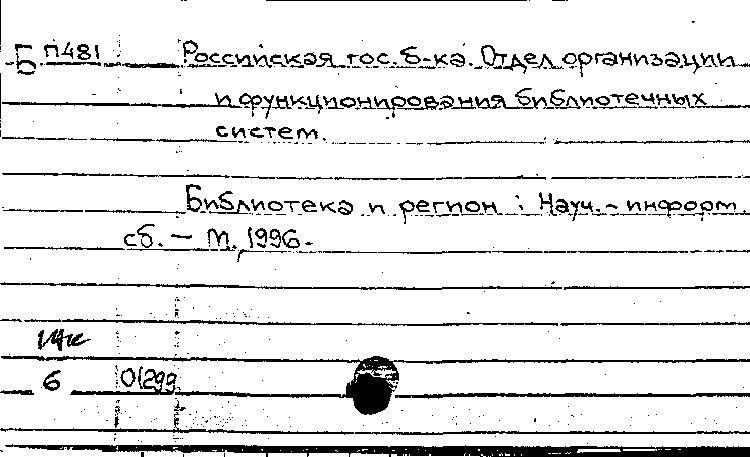 Б П481 Российская гос. б-ка. Отдел организации
и функционирования библиотечных
систем.
Библиотека и регион : Науч.-информ.
сб. — М., 1996.-
б 01299